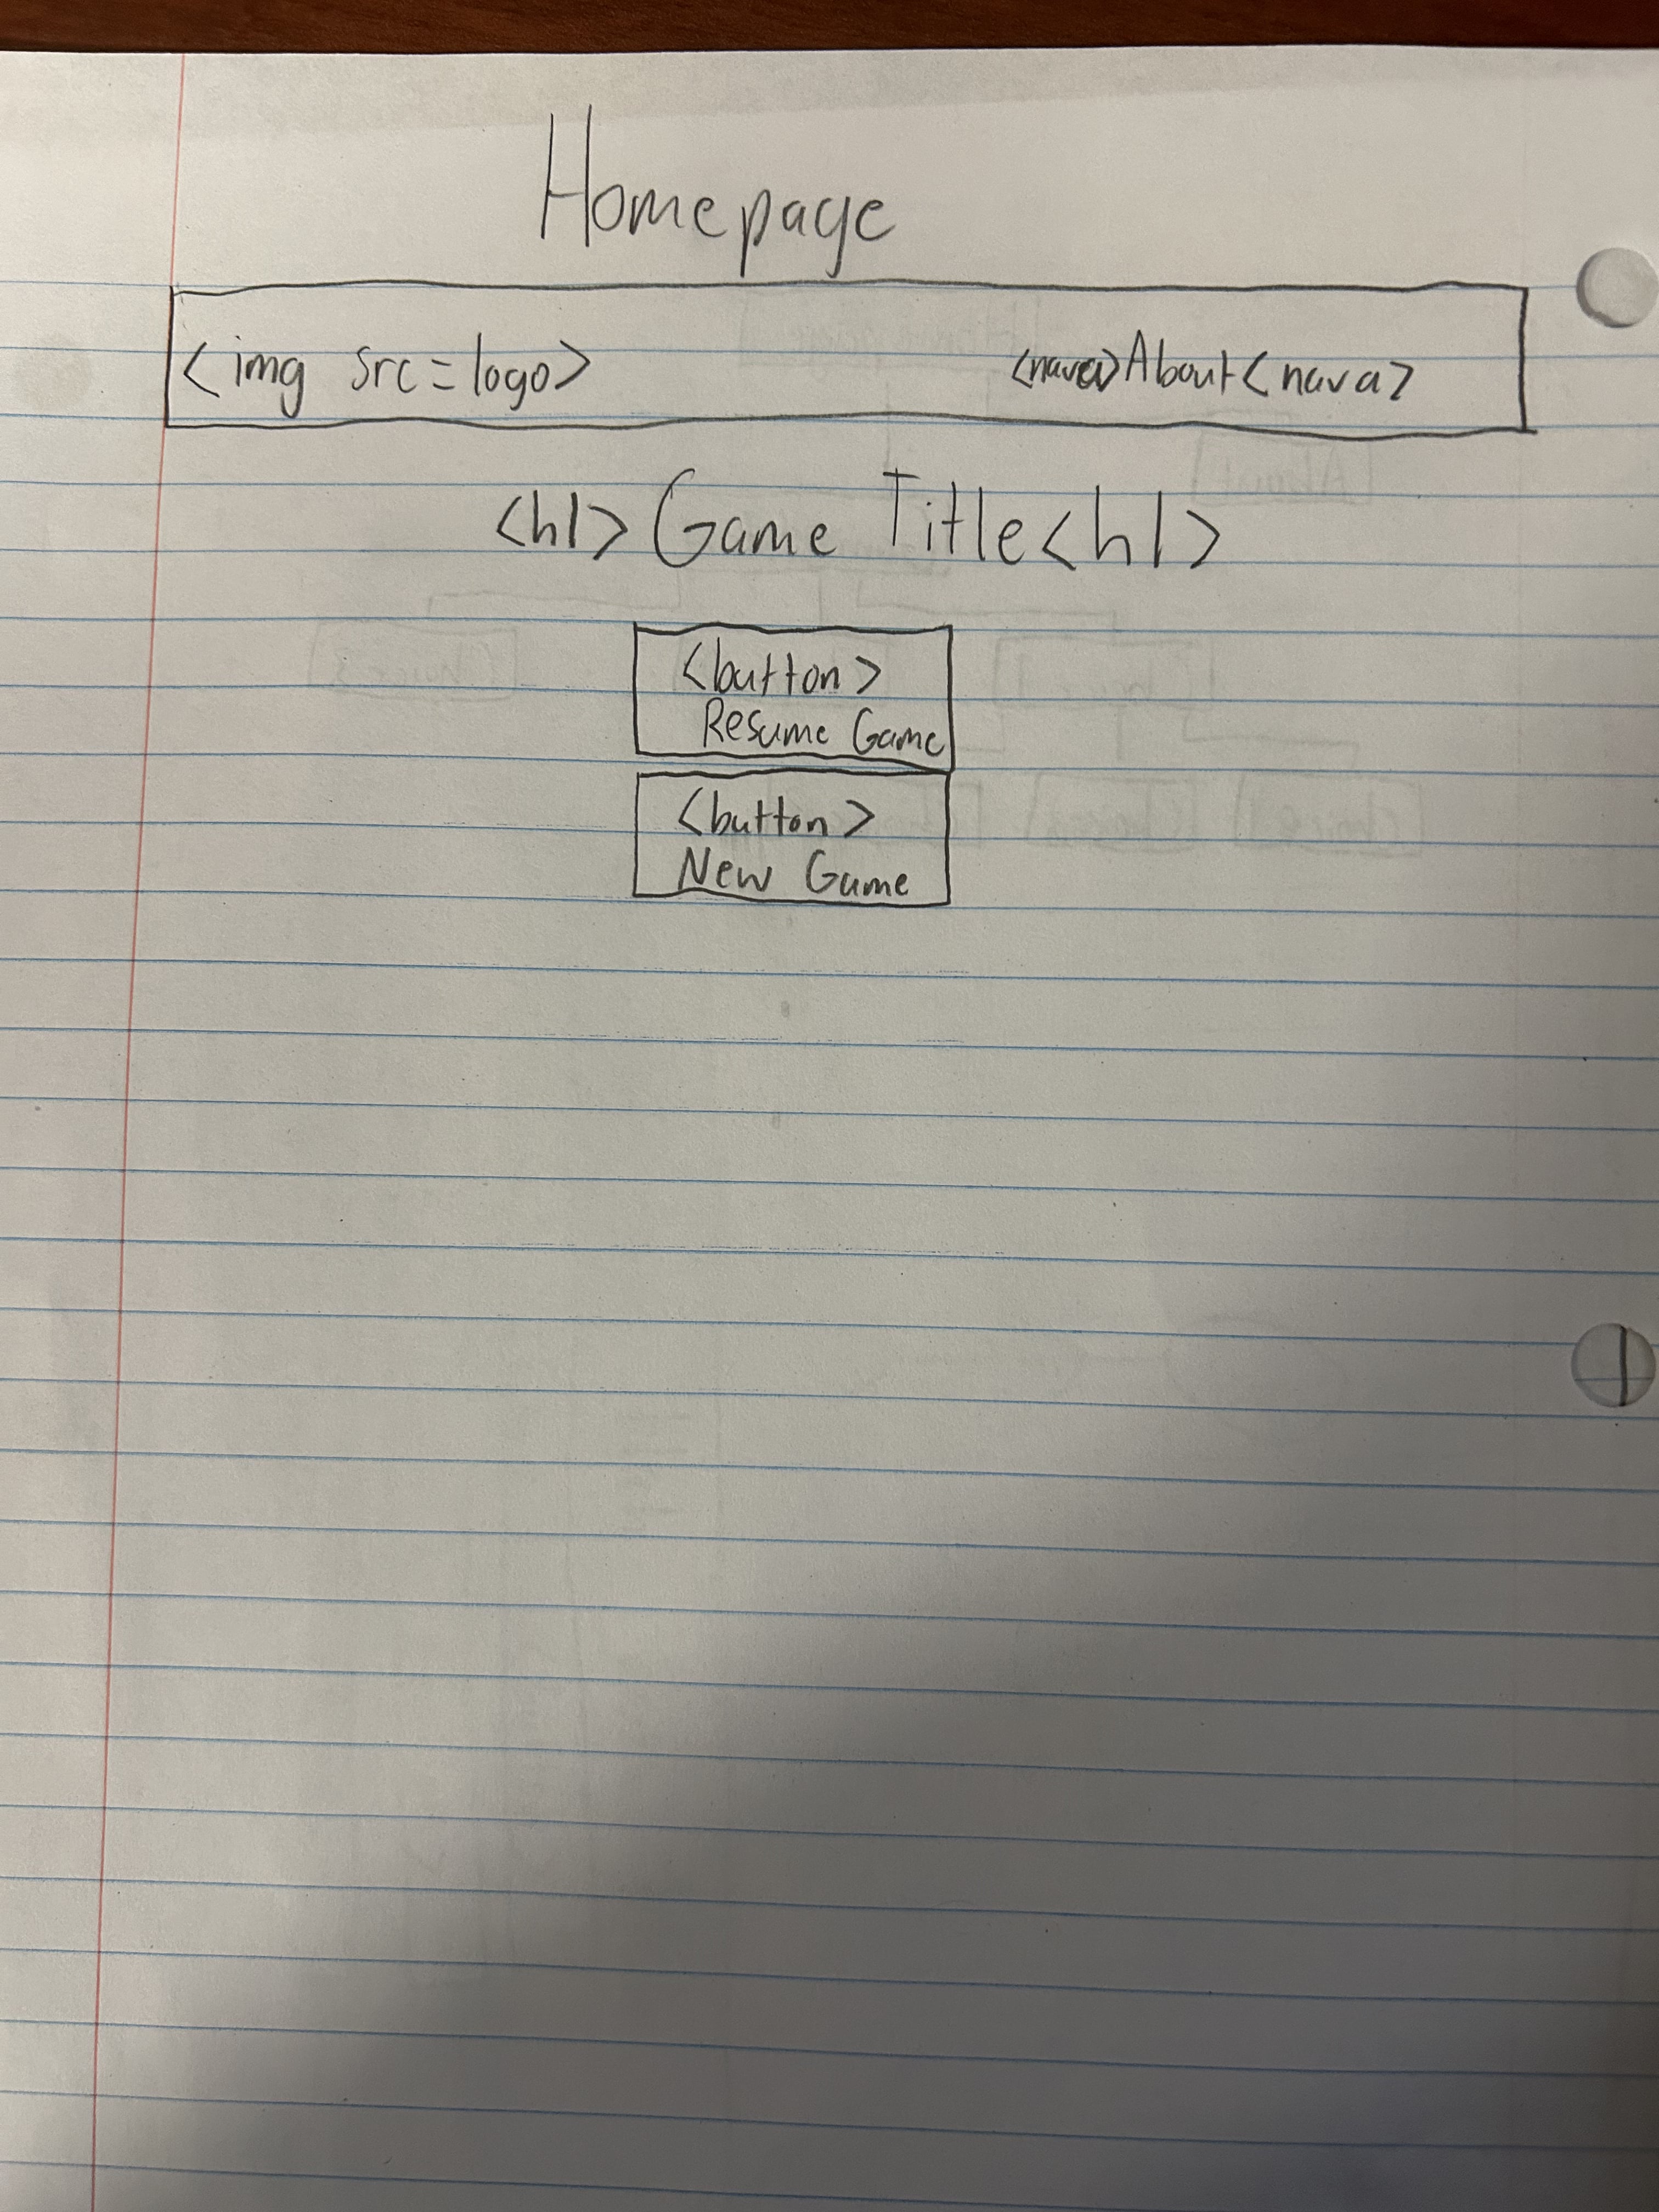 Homepage
<img src=logo> <nava>About<nava>
<h1>Game Title<h1>
<button>
Resume Game
<button>
New Game